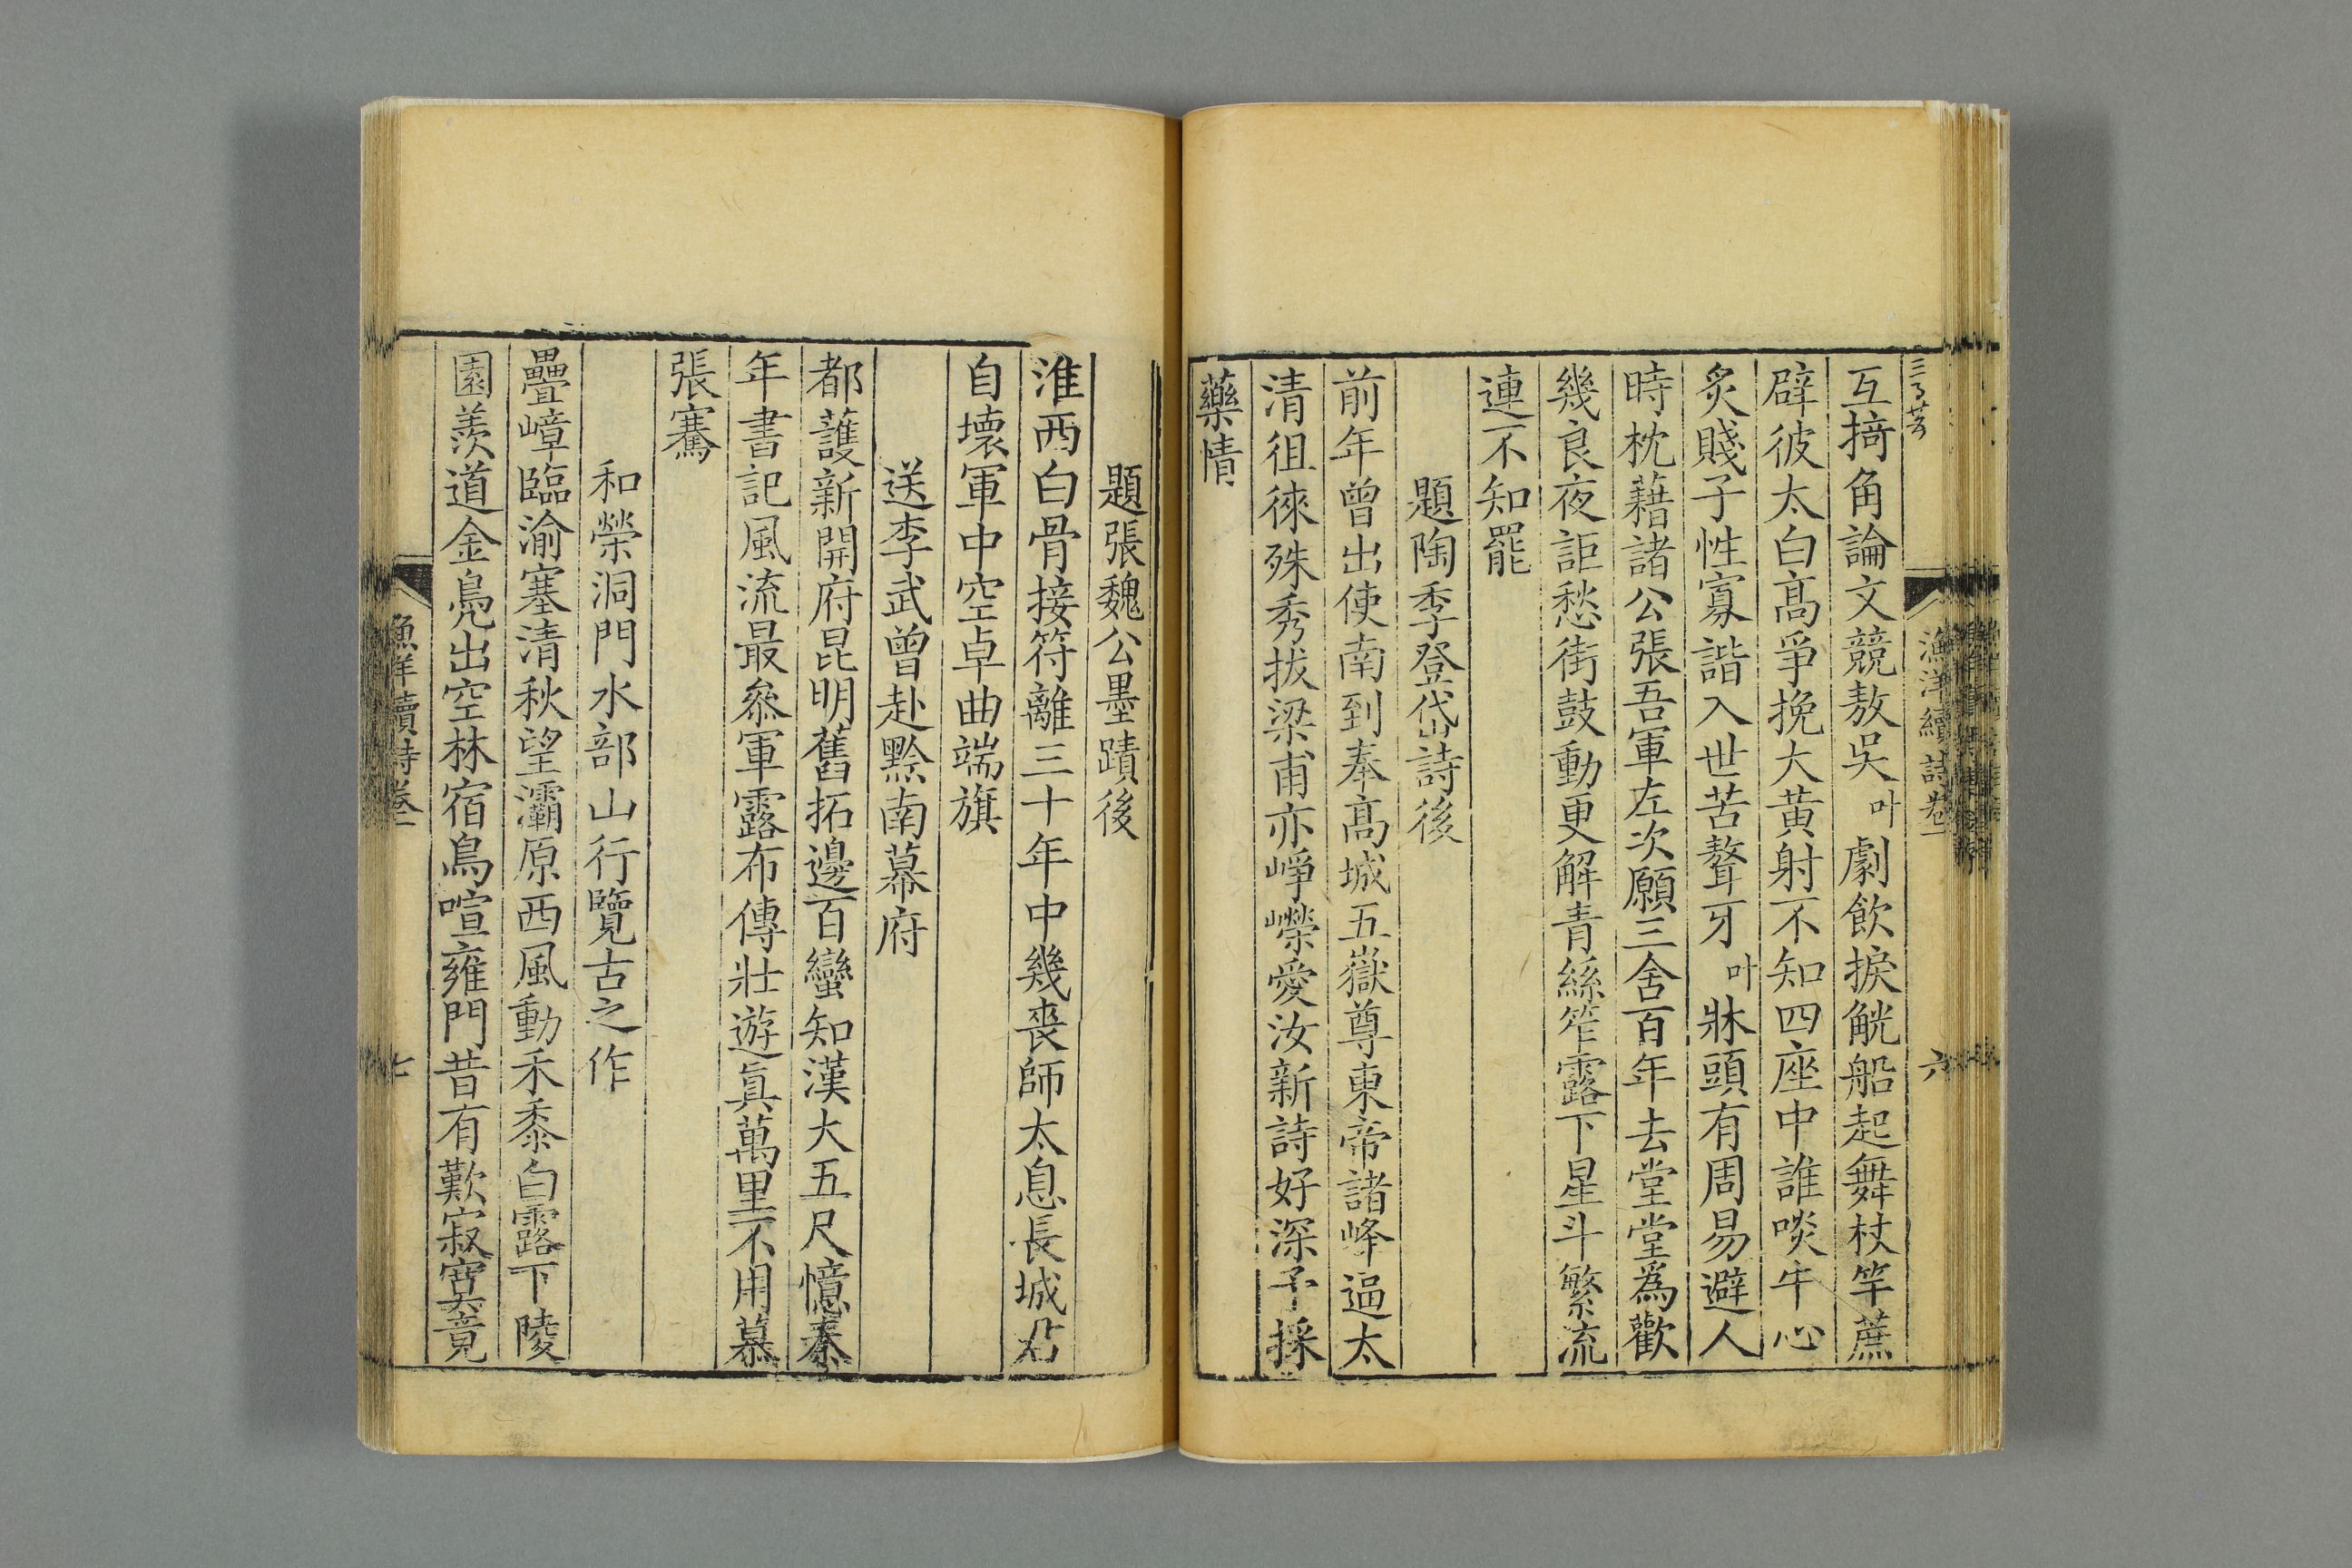 互掎角論文競敖吳叶劇飲捩觥船起舞杖竿蔗
辟彼太白高爭挽大黃射不知四座中誰啖牛心
炙賤子性寡諧入世苦聱牙叶牀頭有周易避人
時枕藉諸公張吾軍左次願三舍百年去堂堂為歡
幾良夜詎愁街鼓動更解青絲笮露下星斗繁流
連不知罷
題陶季登岱詩後
前年曾出使南到奉高城五嶽尊東帝諸峰逼太
清徂徠殊秀拔梁甫亦崢嶸愛汝新詩好深予採
藥情
漁洋續詩卷一
六
題張魏公墨蹟後
淮西白骨接符離三十年中幾喪師太息長城君
自壞軍中空卓曲端旗
送李武曾赴黔南幕府
都護新開府昆明舊拓邊百蠻知漢大五尺憶秦
年書記風流最參軍露布傳壯遊真萬里不用慕
張騫
和榮洞門水部山行覽古之作
疊嶂臨渝塞清秋望灞原西風動禾黍白露下陵
園羨道金鳧出空林宿鳥喧雍門昔有歎寂寞竟
漁洋續詩卷一
七